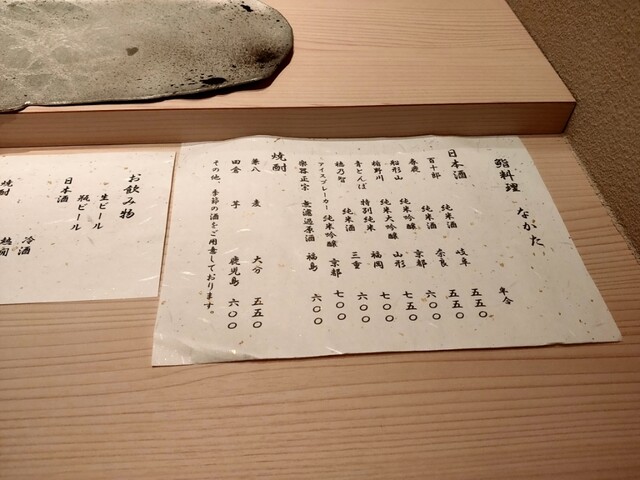 鮨料理 なかた
日本酒
百十郎 純米酒 岐阜 五五〇
春鹿 純米酒 奈良 五五〇
純米吟醸 京都 六〇〇
純米大吟醸 山形 七五〇
青とんぼ 特別純米 福岡 七〇〇
純米酒 三重 六〇〇
アイスブレーカー 純米吟醸 京都 七〇〇
楽器正宗 無濾過原酒 福島 六〇〇
焼酎
兼八 麦 大分 五五〇
田倉 芋 鹿児島 六〇〇
その他、季節の酒をご用意しております。
お飲み物
生ビール
瓶ビール
日本酒
冷酒
焼酎